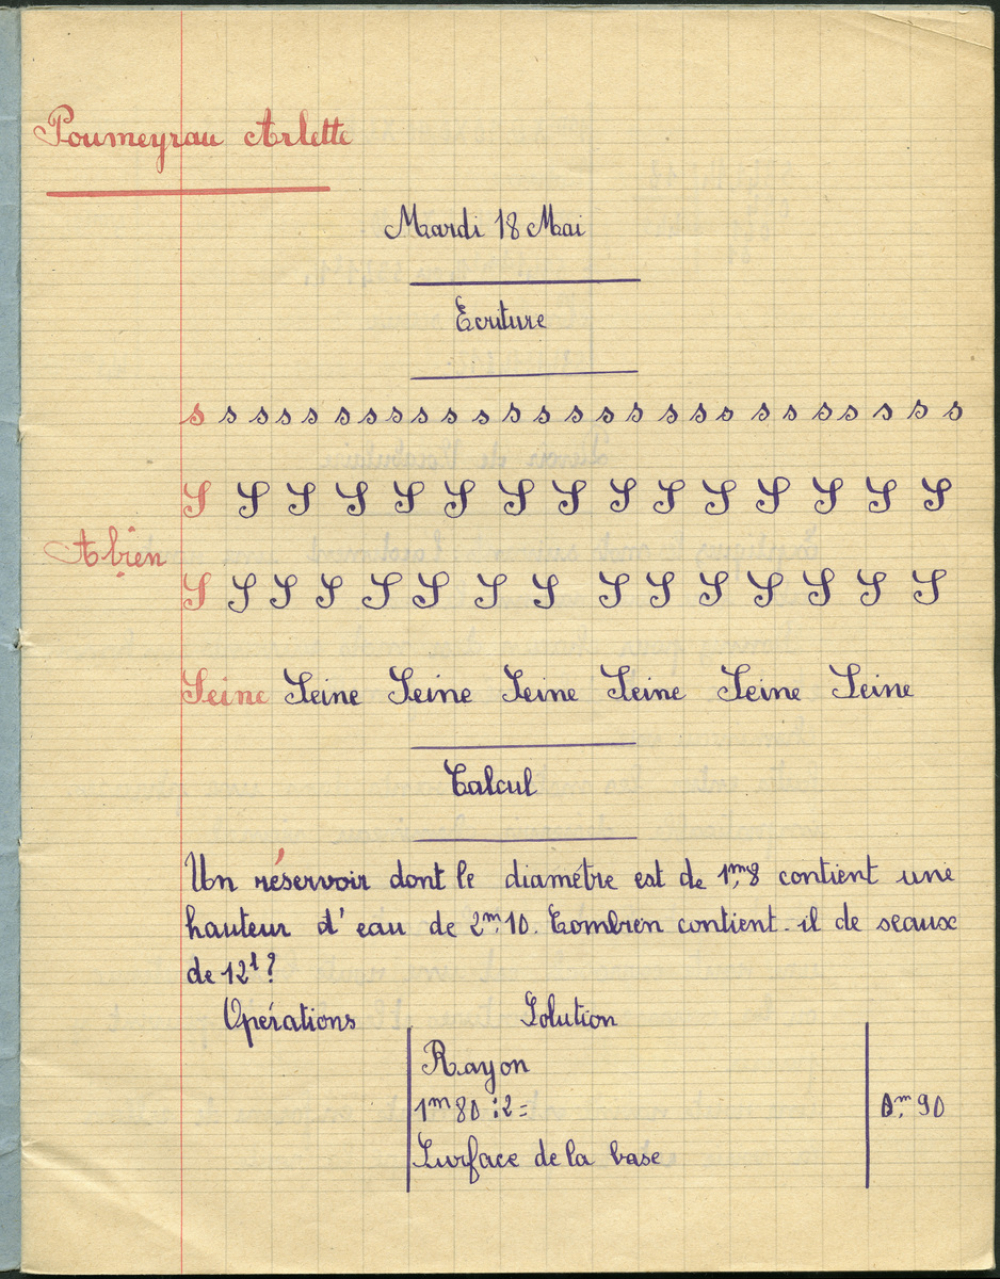 Poumeyrau Arlette
Mardi 18 Mai
Ecriture
s s s s s s s s s s s s s s s s s s s s s s s s s s
S S S S S S S S S S S S S S S
A bien
S S S S S S S S S S S S S S S
Seine Seine Seine Seine Seine Seine Seine
Calcul
Un réservoir dont le diamétre est de 1m,8 contient une
hauteur d'eau de 2m,10. Combien contient-il de seaux
de 12l?
Opérations Solution
Rayon
1m80 : 2 = 0m,90
Surface de la base